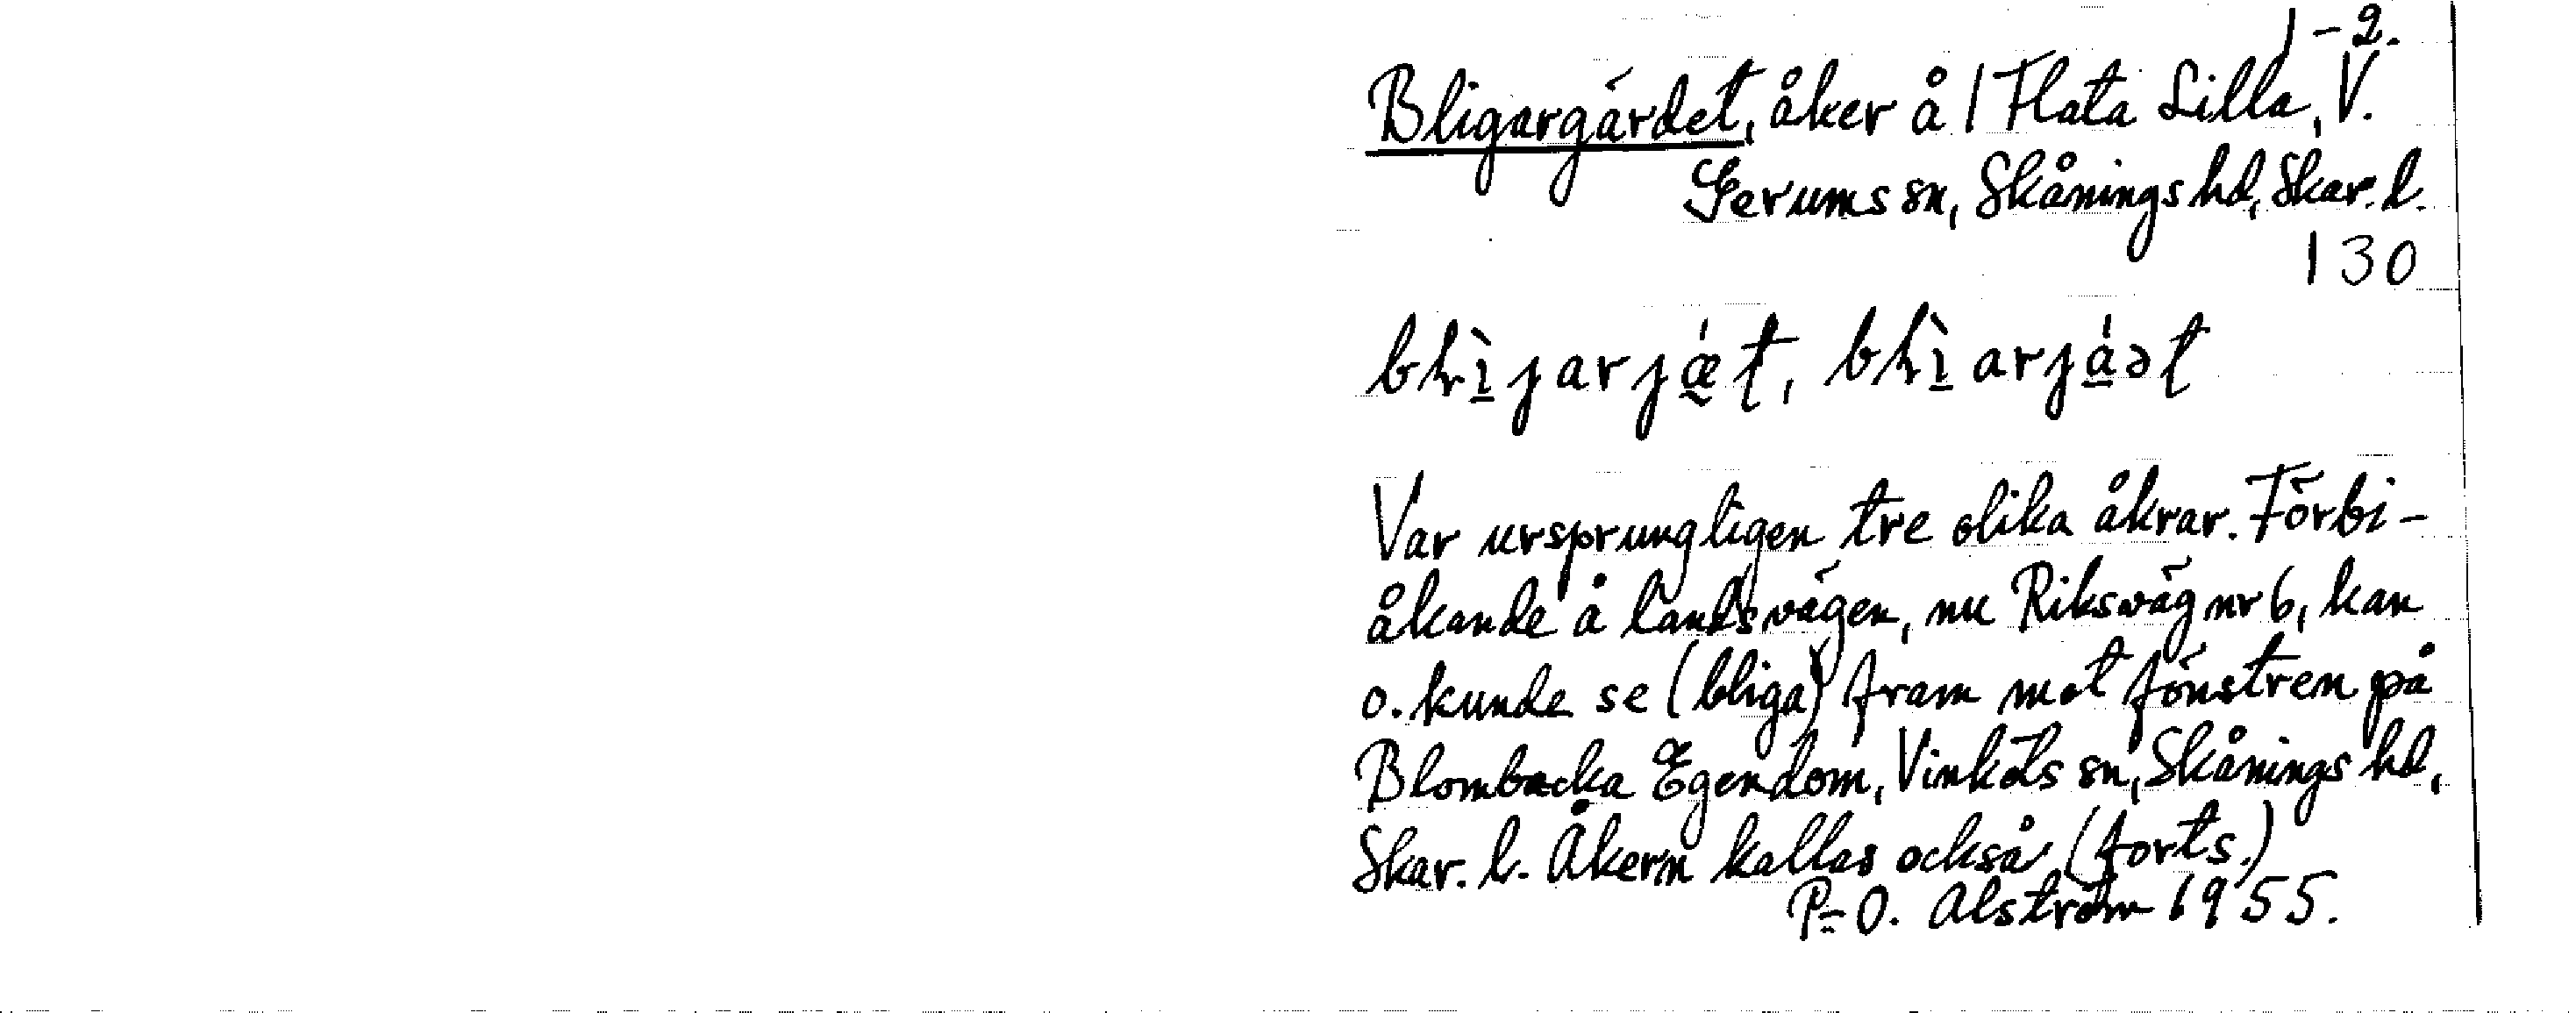 1-2.
Bligargärdet, åker å 1 Flata Lilla, V.
Gerums sn, Skånings hd, Skar. l.
130
Var ursprungligen tre olika åkrar. Förbi-
åkande å landsvägen, nu Riksväg nr 6, kan
o. kunde se (bliga) fram mot fönstren på
Blombacka Egendom, Vinköls sn, Skånings hd,
Skar. l. Åkern kallas också (forts.)
P-O. Alström 1955.